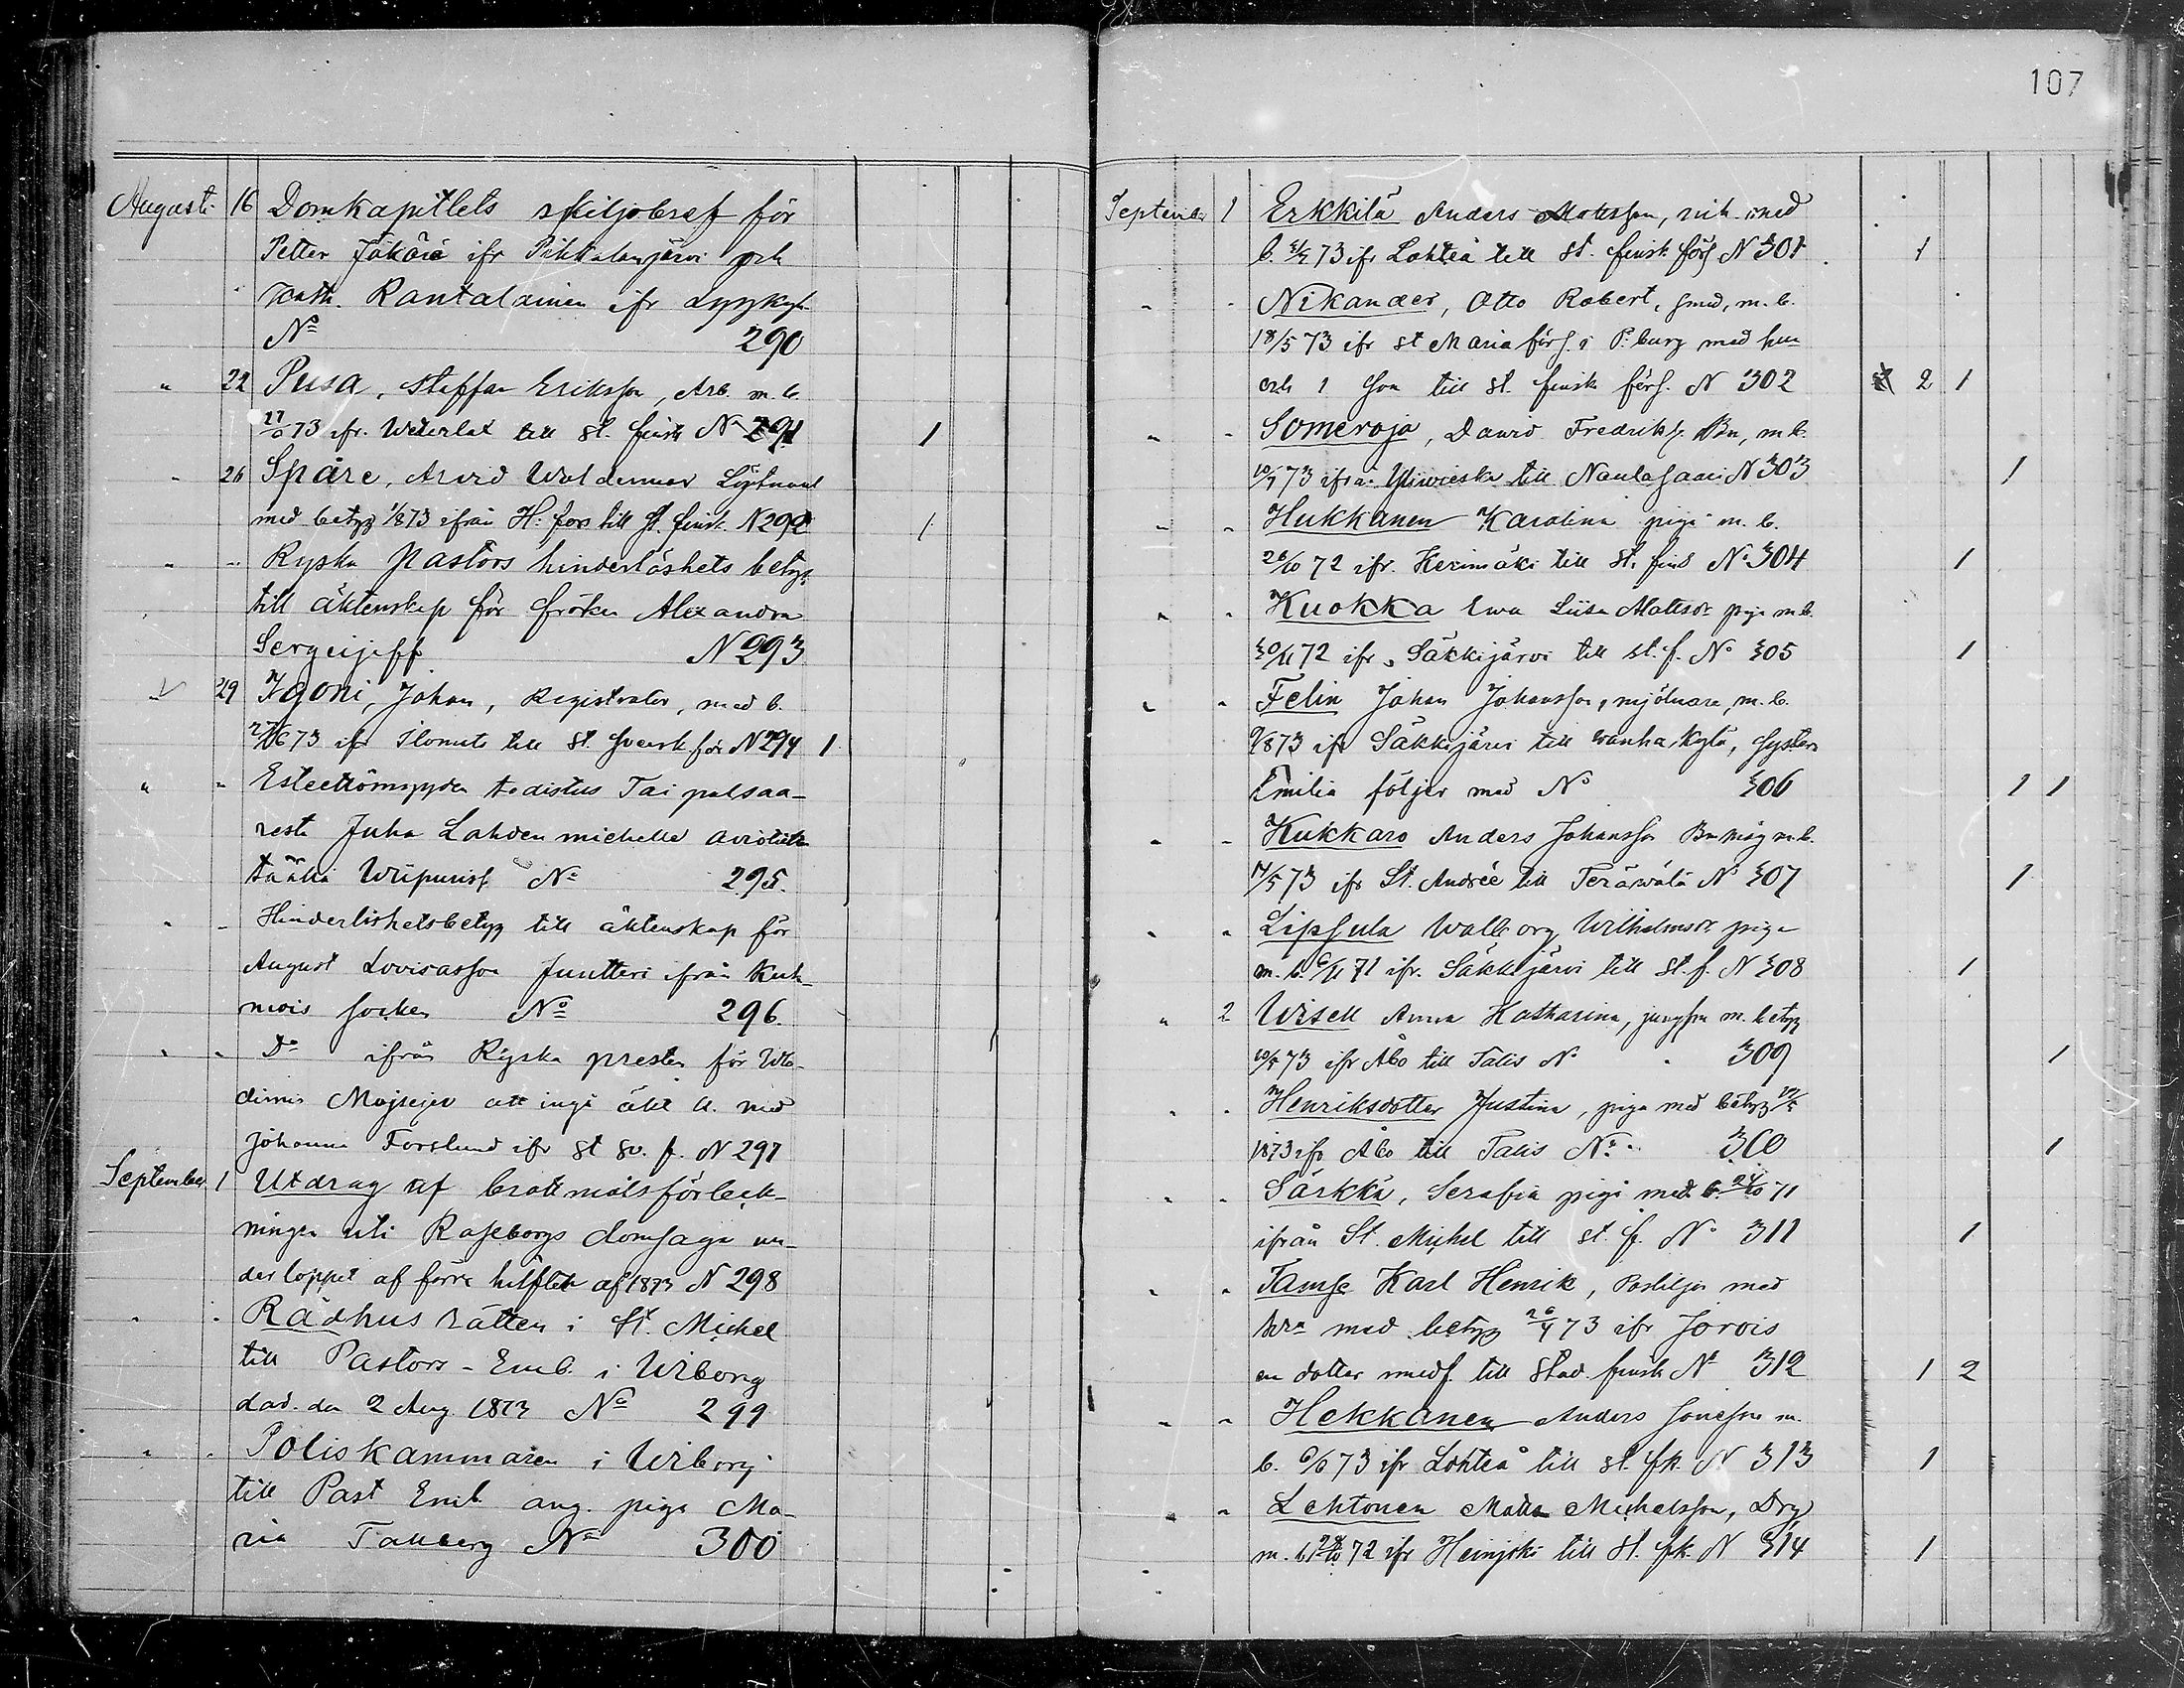 107
Augusti 16 Domkapitlets skiljobref för
Petter Jäkärä ifr Pihkalanjärvi och
Kath. Rantalainen ifr Lyykylä
No 290
" 22 Pusa, Staffan Eriksson, Arb. m. b.
73 ifr. Urtula till St. finsk No 291 1
" 26 Spåre, Arvid Woldemar Löjtnant
med betyg 1/8 73 ifrån H:fors till St. finsk. N 292 1
" " Ryska Pastors hinderlöshets betyg
till äktenskap för fröken Alexandra
Sergeijeff N 293
29 Igoni, Johan, Registrator, med b.
73 ifr Ilomants till St. svensk för N 294 1
" " Esteettömyyden todistus Taipalsaa-
resta Juha Lahden miehelle avioliitton
täällä Wiipurisf No 295.
" " Hinderlöshetsbetyg till äktenskap för
August Lovisasson Juutteri ifrån Kuh-
mois socken No 296.
" " Do ifrån Ryska presten för Wla-
dimir Mojsejev att ingå äkt. med
Johanna Forslund ifr St sv. f. N 297
September 1 Utdrag af brottmålsförteck-
ningen uti Raseborgs domsaga un-
der loppet af förra hälften af 1873 N 298
" " Rådhus rätten i St. Michel
till Pastors-Emb. i Wiborg
dat. den 2 Aug. 1873 No 299
" " Poliskammaren i Wiborg
till Past Emb. ang. piga Ma-
ria Tallberg No 300
September 1 Erkkilä Anders Matsson, med
b. 73 ifr Lohteå till St. finsk förs N 301 1
" " Nikander, Otto Robert, smed, m. b.
18/5 73 ifr St Maria förs. i P:burg med hu
och 1 son till St. finsk förs. N 302 2 1
" " Someroja, David Fredriks. Bn, m b.
10/7 73 ifrån Ylivieska till Naulasaari N 303 1
" " Hukkanen Karolina piga m. b.
26/10 72 ifr. Kerimäki till St. fins No 304 1
" " Kuokka Ewa Liisa Matsdr piga m b.
30/11 72 ifr. Säkkijärvi till st. f. No 305 1
" " Felin Johan Johansson, mjölnare, m. b.
9/8 73 ifr Säkkijärvi till Wanhakylä, systern
Emilia följer med No 306 1 1
" " Kukkaro Anders Johansson Bn måg m. b.
14/5 73 ifr St. Andrée till Teräwälä No 307 1
" " Lipsula Walborg Wilhelmsdr piga
m. b. 6/11 71 ifr. Säkkijärvi till St. f. N 308 1
" 2 Wisell Anna Katharina, jungfru m. betyg
73 ifr Åbo till Talis No 309 1
" " Henriksdotter Justina, piga med betyg
1873 ifr Åbo till Talis No 310 1
" " Särkkä, Serafia piga med b. 24/10 71
ifrån St. Michel till st. f. No 311 1
" " Karl Henrik, Postiljon med
med betyg 26/4 73 ifr Jorois
en dotter medf. till Stad. finsk No 312 1 2
" " Hekkanen Anders m.
b. 73 ifr Lohteå till st. fk. N 313 1
" " Lehtonen Matts Michelsson, Drg
m. b. 72 ifr Heinjoki till St. fk. N 314 1